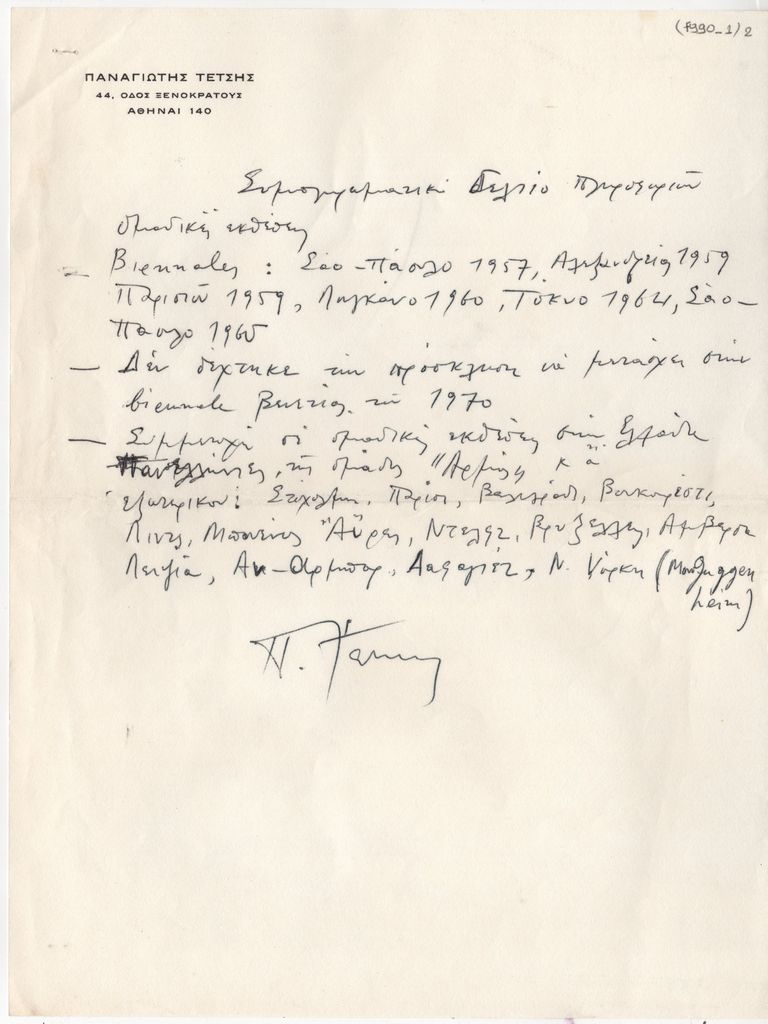 (f990_1)2
ΠΑΝΑΓΙΩΤΗΣ ΤΕΤΣΗΣ
44, ΟΔΟΣ ΞΕΝΟΚΡΑΤΟΥΣ
ΑΘΗΝΑΙ 140
Συμπληρωματικό Δελτίο πληροφοριών
Ομαδικές εκθέσεις
– Biennales : Σάο-Πάουλο 1957, Αλεξανδρείας 1959
Παρισιών 1959, Λουγκάνο 1960, Τόκυο 1964, Σάο-
Πάουλο 1965
– Δέν δέχτηκε την πρόσκληση νά μετάσχει στην
biennale Βενετίας τό 1970
– Συμμετοχή σέ ομαδικές εκθέσεις στην Ελλάδα
Πανελλήνιες, της ομάδας "Αρμός" κ ά
εξωτερικού: Στοχόλμη, Παρίσι, Βελιγράδι, Βουκουρέστι,
Μπουένος Άϋρες, Βρυξέλλες, Αμβέρσα
Αν-Άρμπορ, Λαφαγιέτ, Ν. Υόρκη (Μουσ. Guggen
heim)
Π. Τέτσης